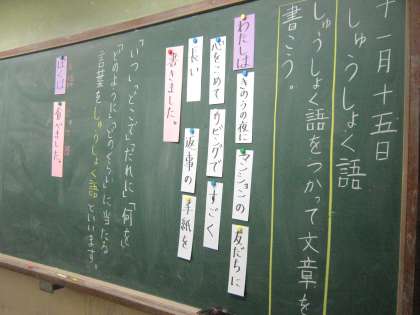 十一月十五日
しゅうしょく語
しゅうしょく語をつかって文章を
書こう。
わたしは きのうの夜に マンションの 友だちに
心をこめて リビングで すごく
長い 返事の 手紙を
書きました。
「いつ」「どこで」「だれに」「何を」
「どのように」「どのくらい」に当たる
言葉をしゅうしょく語といいます。
ぼくは